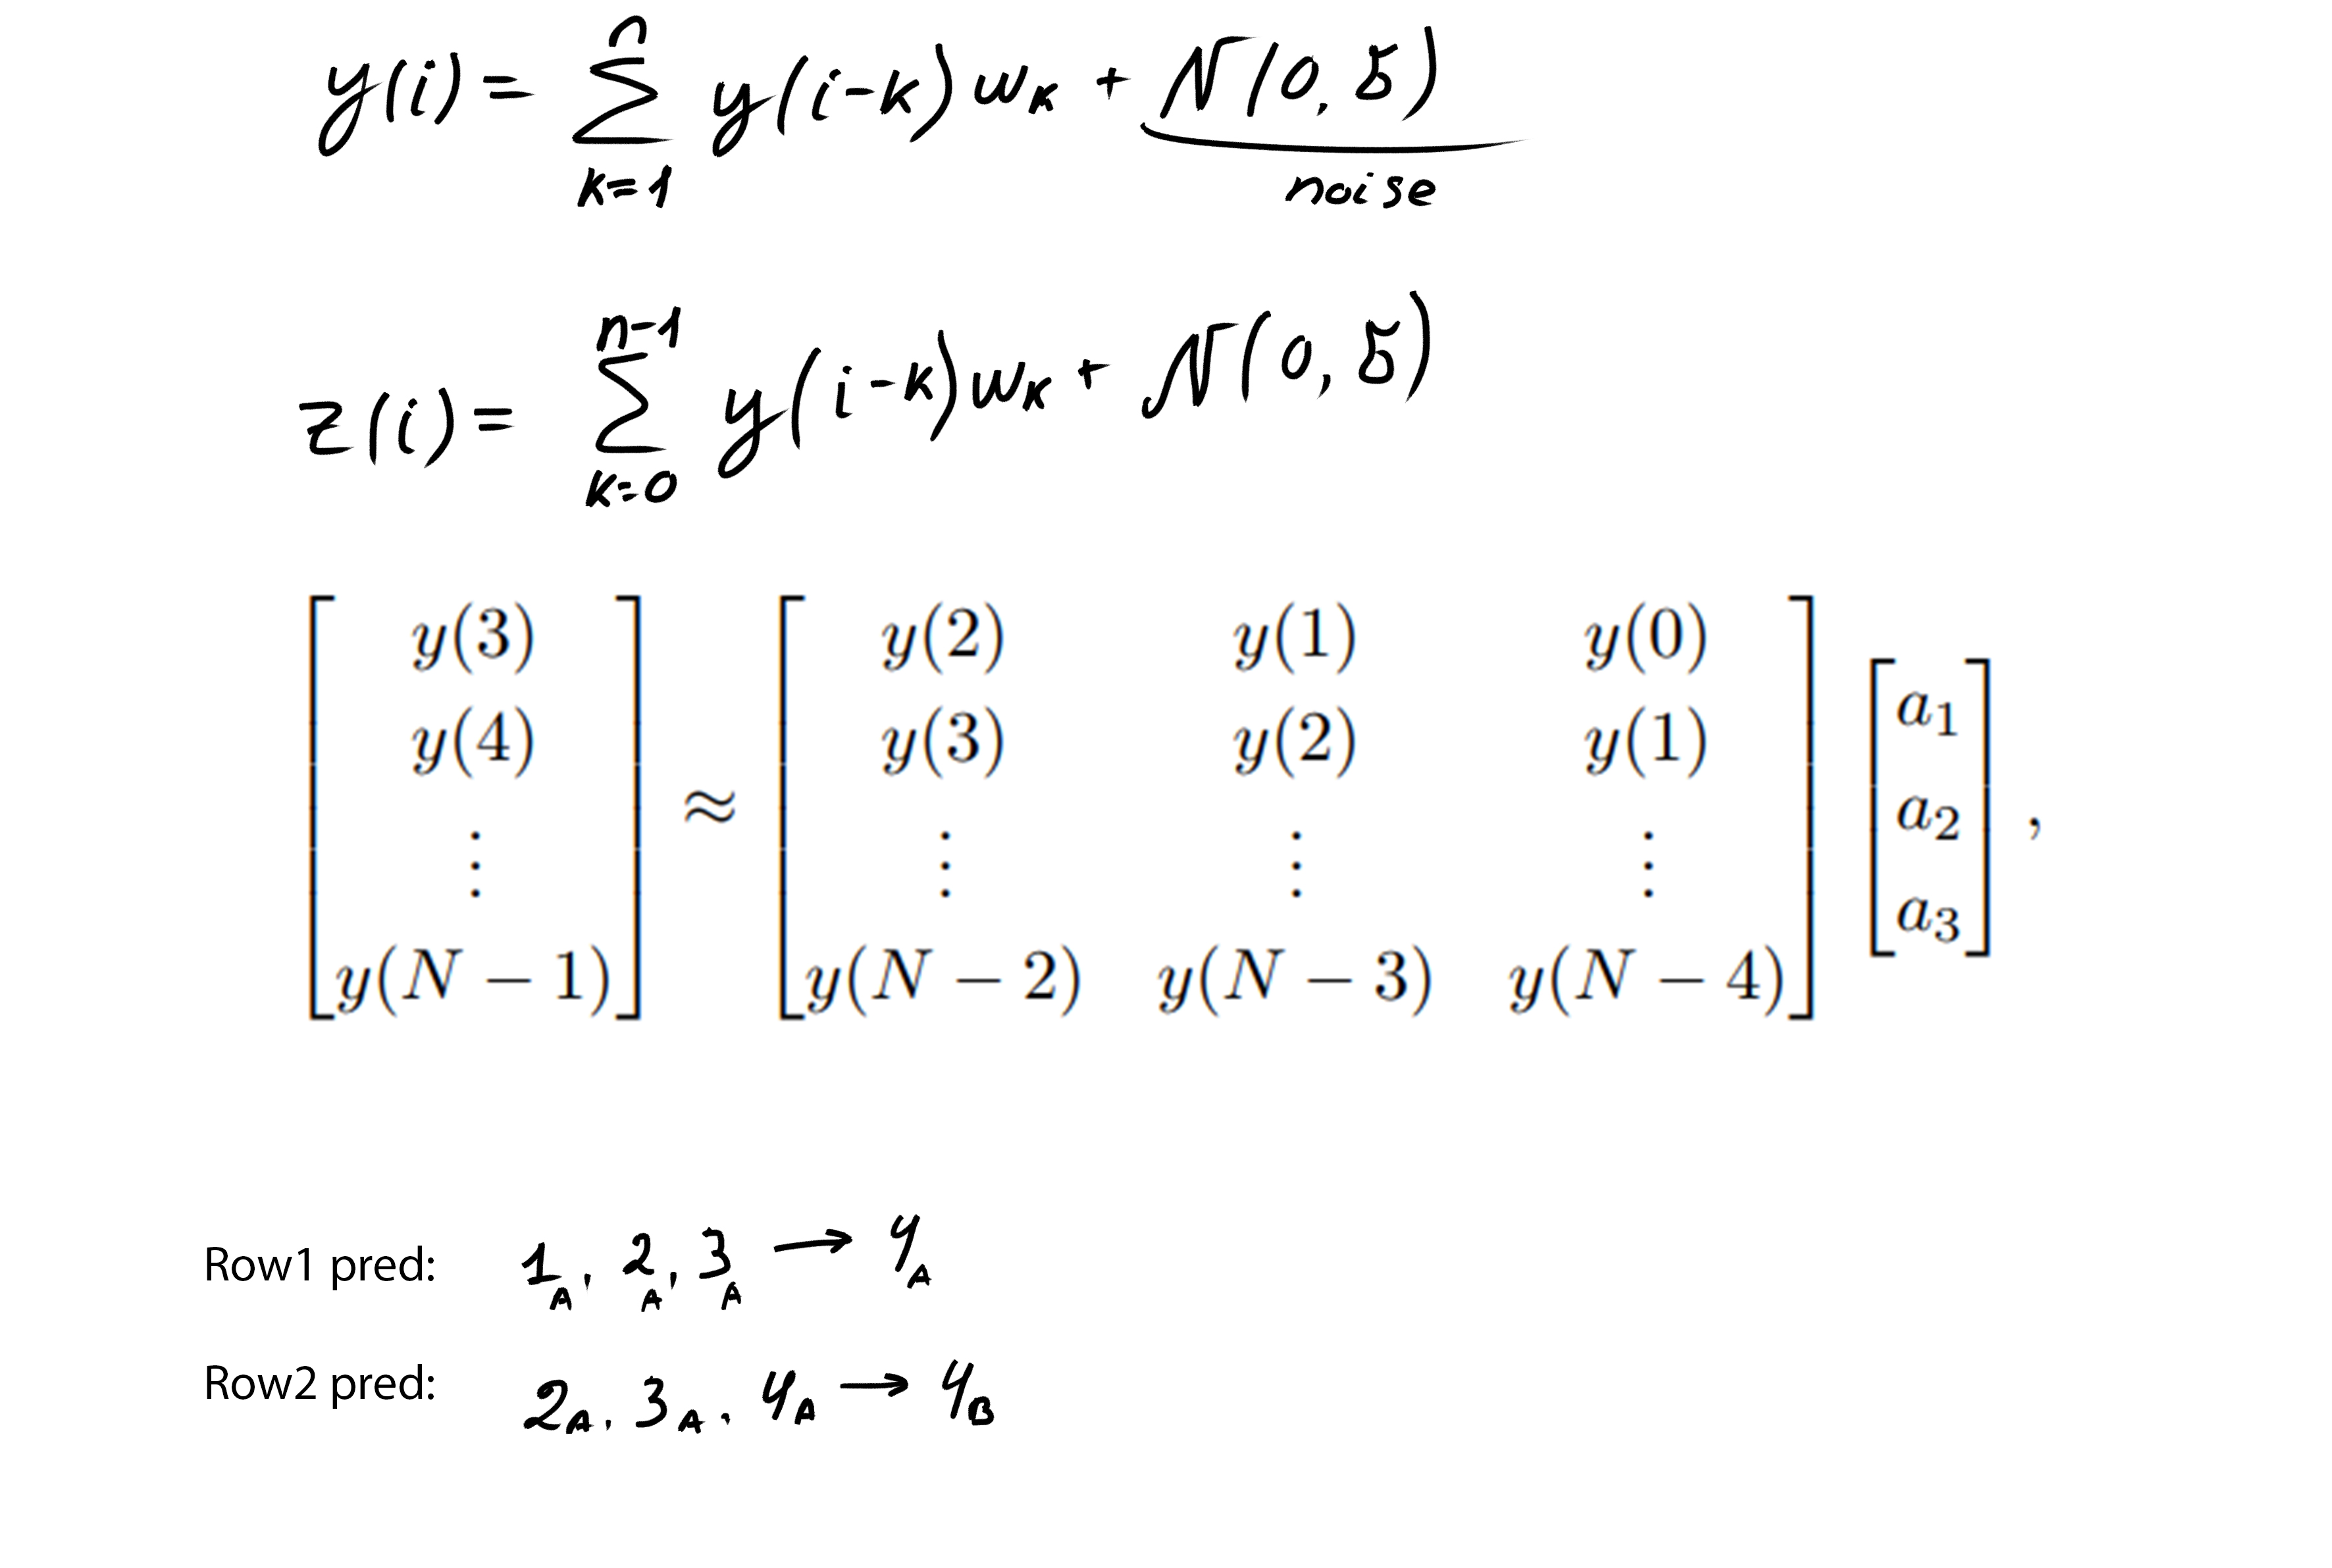 y(i) = n∑k=1 y(i-k) wₖ + N(0, 5)
noise
z(i) = n-1∑k=0 y(i-k) wₖ + N(0, 5)
y(3) y(2) y(1) y(0)
y(4) y(3) y(2) y(1)
⋮ ≈ ⋮ ⋮ ⋮
y(N − 1) y(N − 2) y(N − 3) y(N − 4)
a₁
a₂ ,
a₃
Row1 pred: 1A, 2A, 3A → 4A
Row2 pred: 2A, 3A, 4A → 4B